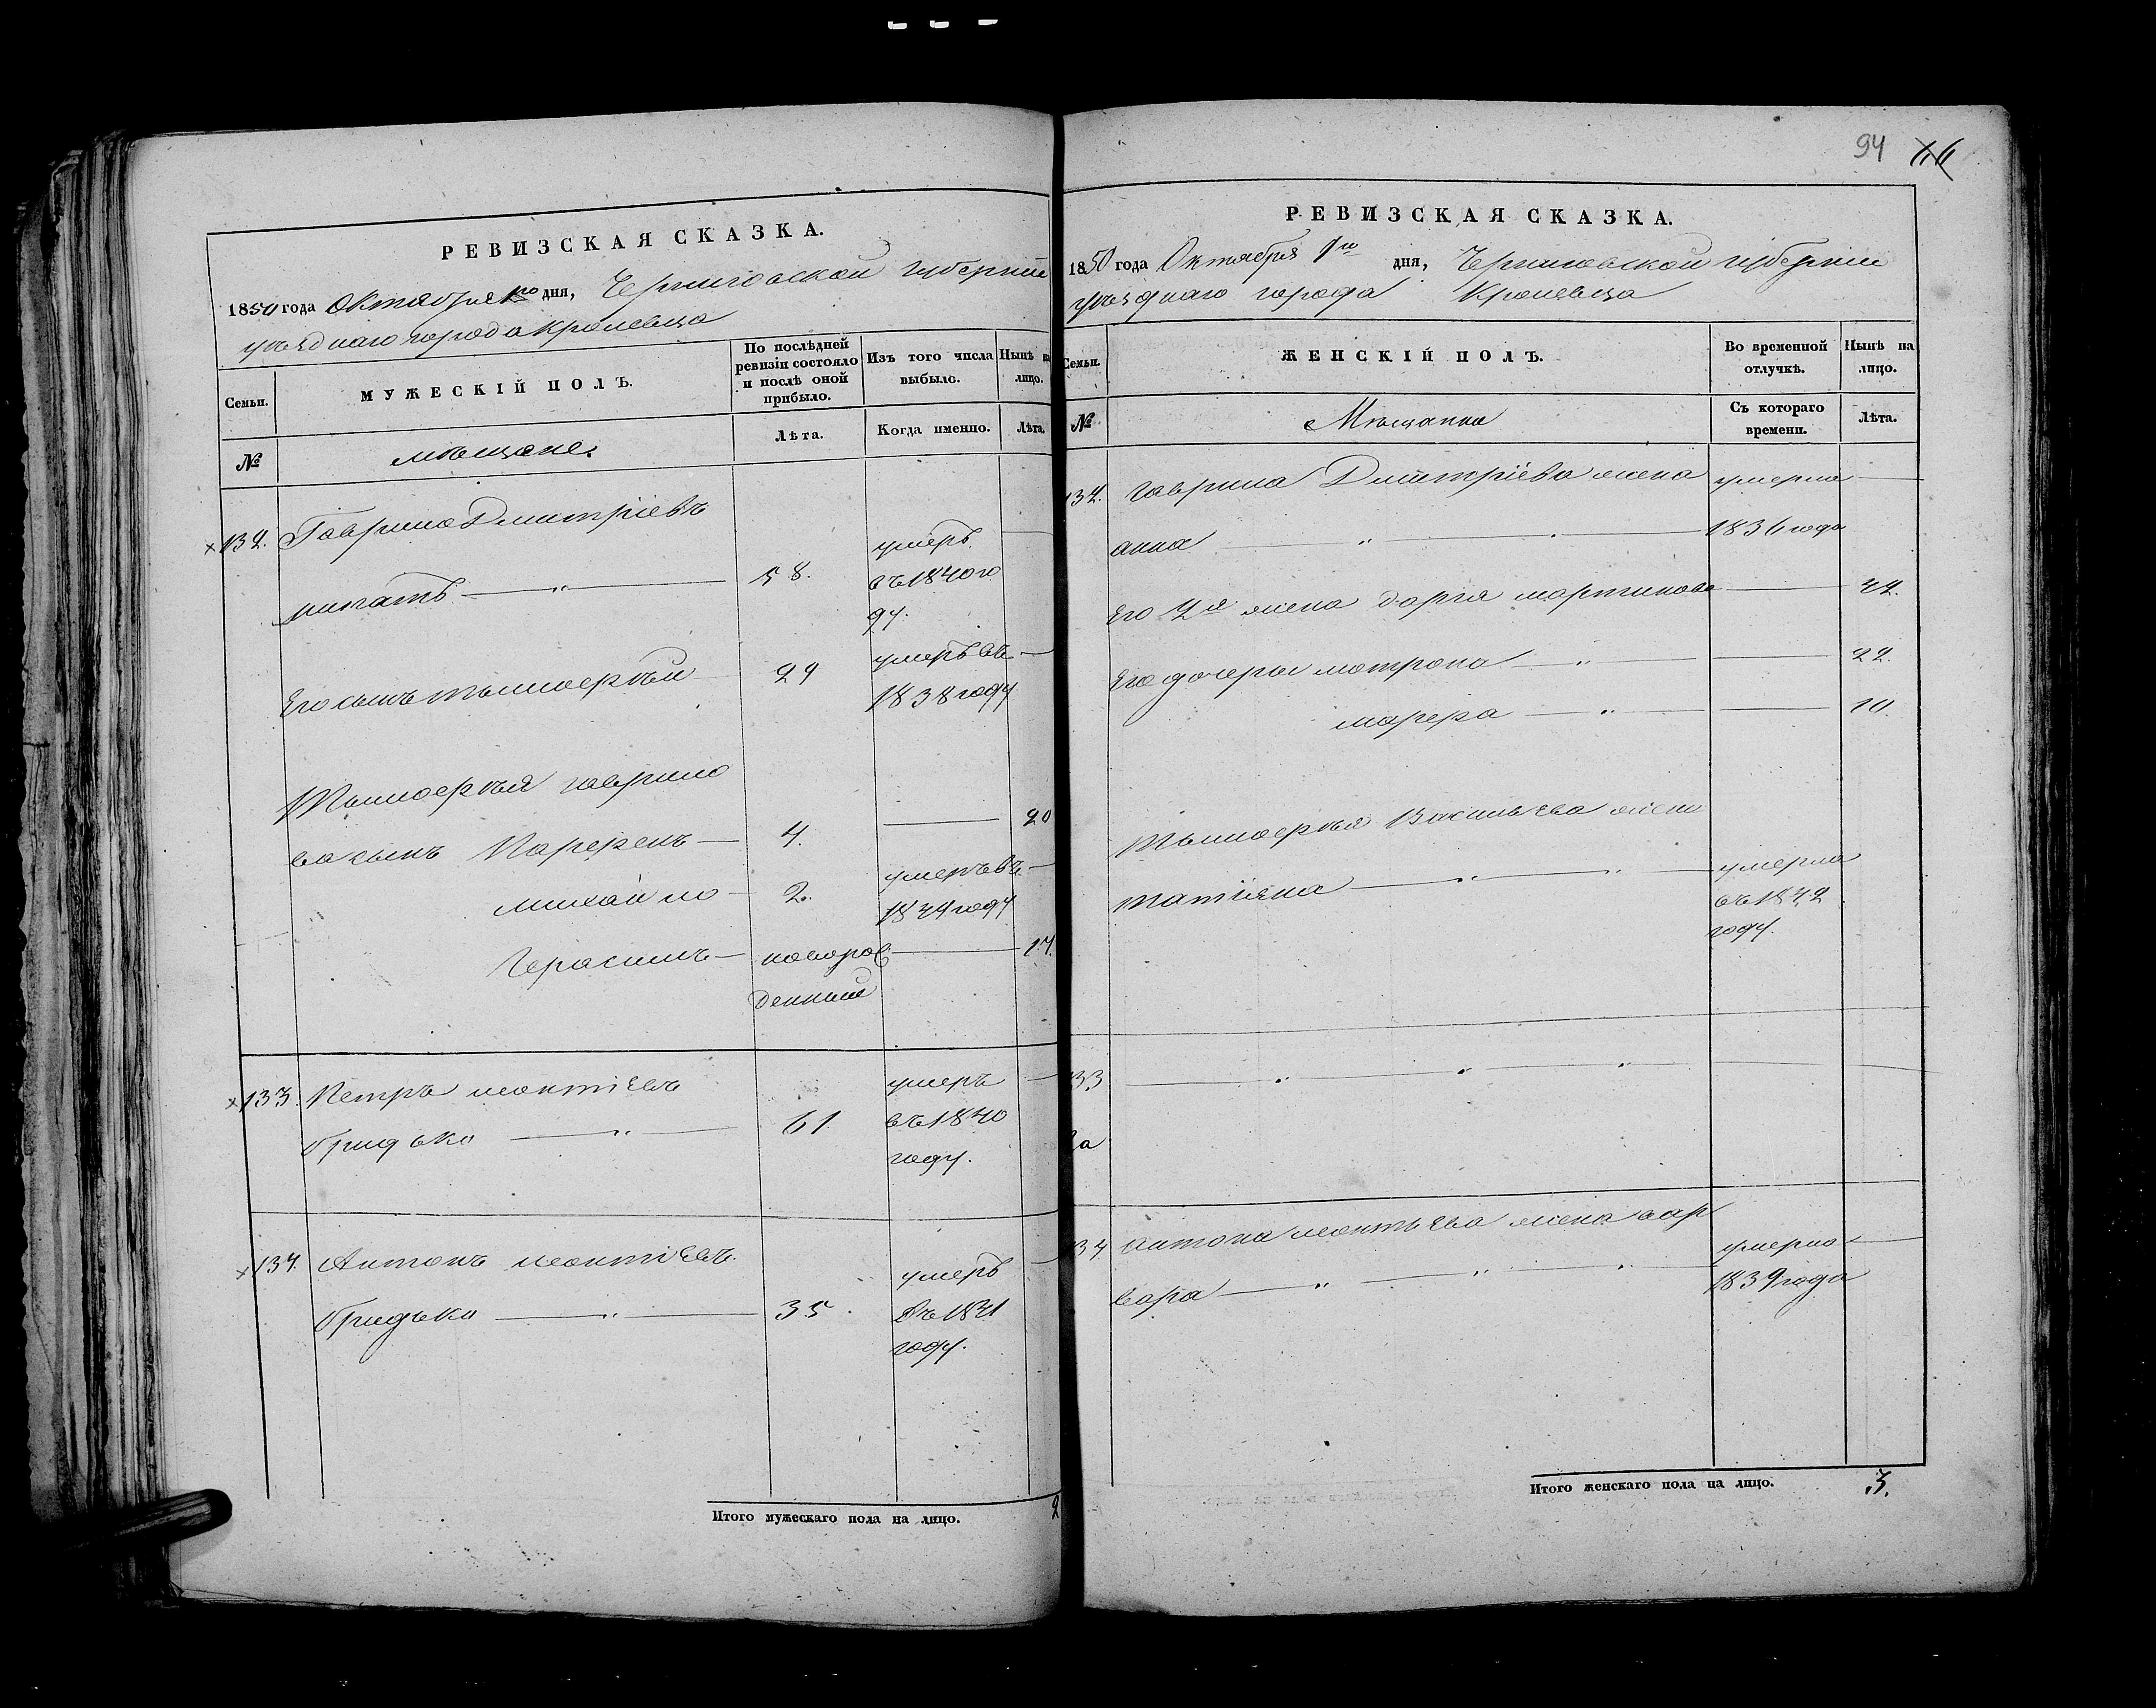 РЕВИЗСКАЯ СКАЗКА.
1850 года Октября 1го дня, Черниговской губерніи
уѣзднаго города Кролевца
Семьи.
МУЖЕСКІЙ ПОЛЪ.
По послѣдней ревизіи состояло и послѣ оной прибыло.
Изъ того числа выбыло.
Нынѣ на лицо.
№
мѣщане.
Лѣта.
Когда именно.
Лѣта.
132. Гаврило Дмитріевъ
58. умеръ въ 1840 го
ду.
Его сынъ тимоерѣй 29 умеръ въ
1838 году
Тимоерѣя гаврило
ва сынъ Паререкъ 4. 20
михайло 2. умеръ въ
1844 году
Герасимъ новорож 17.
денный
133. Петръ леонтіевъ умеръ
Гридько 61 въ 1840
году.
134. Антонъ леонтіевъ. умеръ
Гридько 35. въ 1841
году.
Итого мужескаго пола на лицо. 2
94
РЕВИЗСКАЯ СКАЗКА.
1850 года Октября 1го дня, Черниговской губерніи
уѣзднаго города Кролевца
Семьи.
ЖЕНСКІЙ ПОЛЪ.
Во временной отлучкѣ.
Нынѣ на лицо.
№
Мѣщанки
Съ котораго времени.
Лѣта.
132. гаврила Дмитріева жена умерла
анна 1836 года
Его 2я жена дарья мартинова 42.
Его дочеры мотрона 22.
марера 10.
Тимоерѣя Васильева жена
татіяна умерла
въ 1842
году.
133
134 антона леонтьева жена вар умерла
вара 1839 года
Итого женскаго пола на лицо. 3.